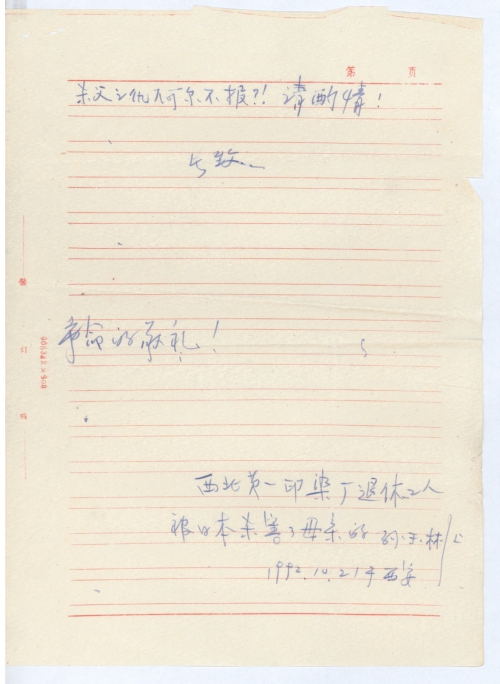 第　　页
杀父之仇为何不报?! 请酌情!
此致
革命的敬礼!
西北第一印染厂退休工人
被日本杀害了母亲的 孙玉林 上
1992.10.21于西安
装
订
线